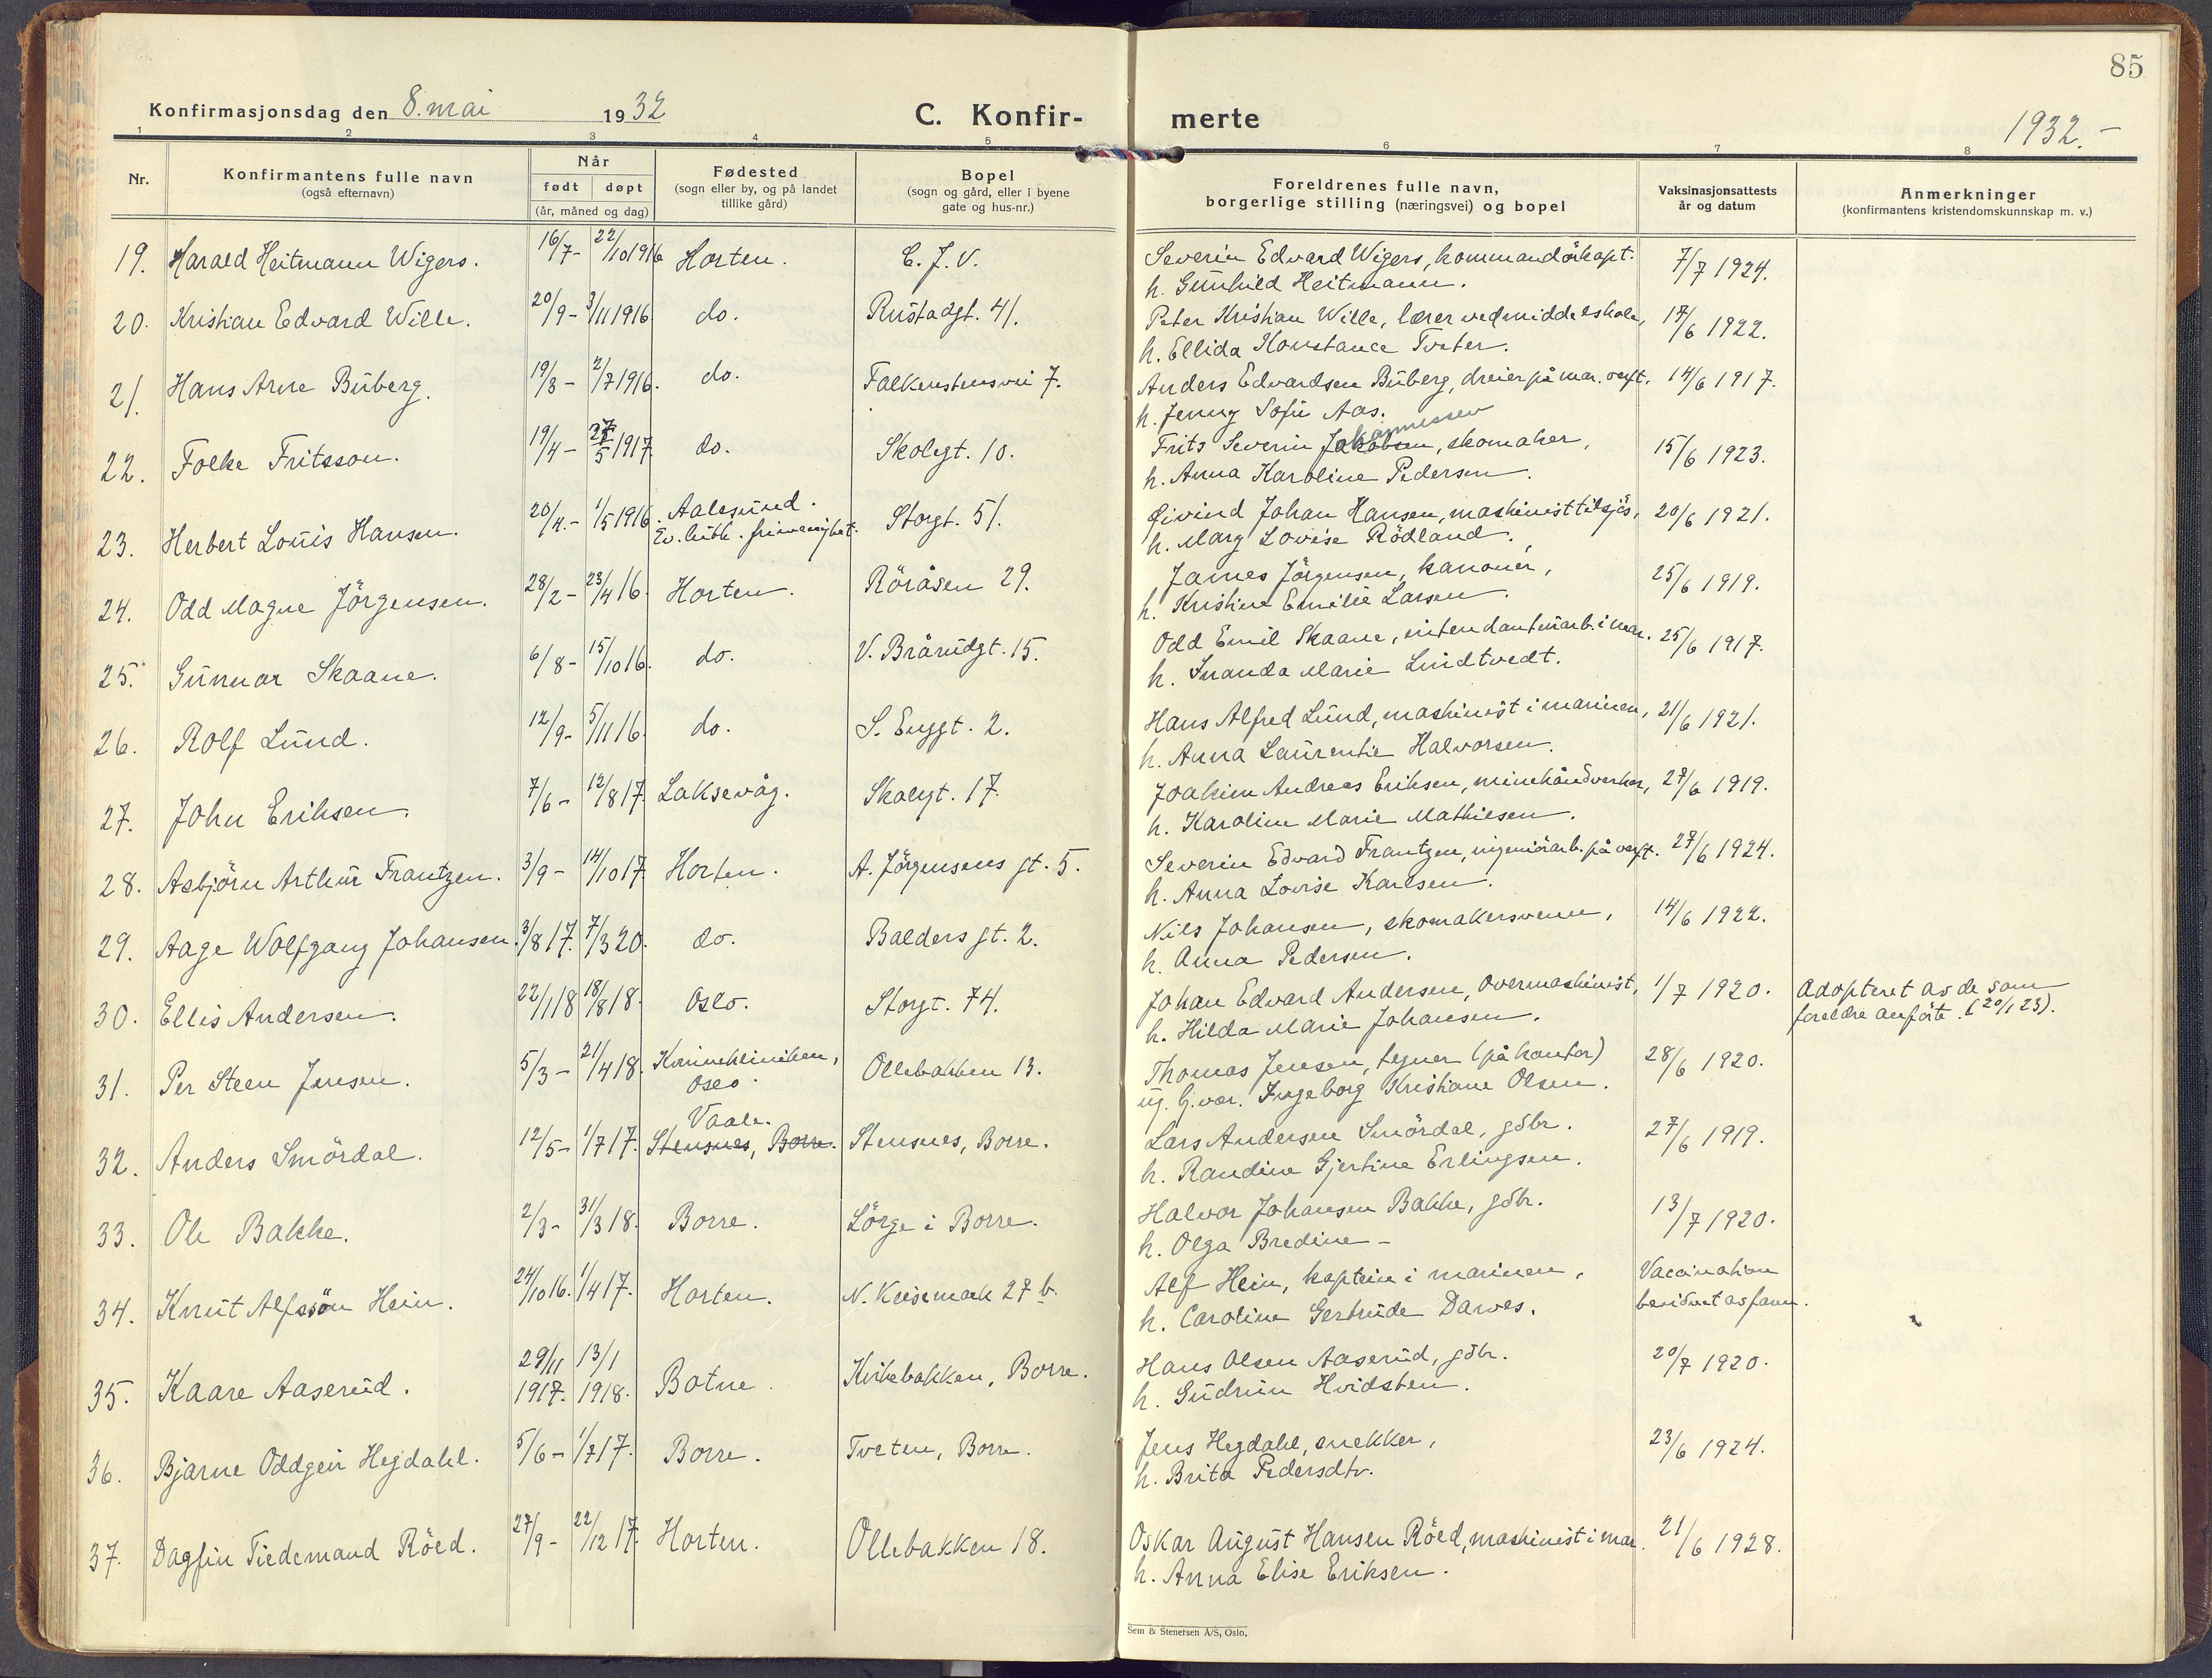 85
Konfirmasjonsdag den 8. mai 1932
C. Konfir- merte
1932.-
1 2 3 4 5 6 7 8
Nr.
Konfirmantens fulle navn
(også efternavn)
Når
født døpt
(år, måned og dag)
Fødested
(sogn eller by, og på landet
tillike gård)
Bopel
(sogn og gård, eller i byene
gate og hus-nr.)
Foreldrenes fulle navn,
borgerlige stilling (næringsvei) og bopel
Vaksinasjonsattests
år og datum
Anmerkninger
(konfirmantens kristendomskunnskap m. v.)
19. Harald Heitmann Wigers. 16/7- 22/10 1916 Horten. C. J. V. Severin Edvard Wigers, kommandörkapt. 7/7 1924.
h. Gunhild Heitmann.
20. Kristian Edvard Wille. 20/9- 3/11 1916. do. Rustadgt. 41. Peter Kristian Wille, lærer ved middelskole, 17/6 1922.
h. Ellida Konstance Tveter.
21. Hans Arne Buberg. 19/3- 2/7 1916. do. Falkenstensvei 7. Anders Edvardsen Buberg, dreier på mar. verft. 14/6 1917.
h. Jenny Sofie Aas.
22. Folke Fritsson. 19/4- 27/5 1917. do. Skolegt. 10. Frits Severin Jakobsen Johannessen, skomaker, 15/6 1923.
h. Anna Karoline Pedersen.
23. Herbert Louis Hansen. 20/4.- 1/5 1916. Aalesund. Storgt. 51. Øivind Johan Hansen, maskinist tilsjös, 20/6 1921.
Ev. luth. frimenighet. h. Mary Lovise Rödland.
24. Odd Magne Jörgensen. 28/2- 23/4 16. Horten. Röråsen 29. James Jörgensen, kanoner, 25/6 1919.
h. Kristine Emilie Larsen.
25. Gunnar Skaane. 6/8- 15/10 16. do. V. Brårudgt. 15. Odd Emil Skaane, intendanturarb. i mar. 25/6 1917.
h. Inanda Marie Lindtvedt.
26. Rolf Lund. 12/9- 5/11 16. do. S. Enggt. 2. Hans Alfred Lund, maskinist i marinen, 21/6 1921.
h. Anna Laurentie Halvorsen.
27. John Eriksen. 7/6- 12/8 17. Laksevåg. Skolegt. 17. Joakim Andreas Eriksen, minehåndverker, 27/6 1919.
h. Karoline Marie Mathiesen.
28. Asbjörn Arthur Frantzen. 3/9- 14/10 17. Horten. A. Jörgensens gt. 5. Severin Edvard Frantzen, ingeniörarb. på verft. 27/6 1924.
h. Anna Lovise Karlsen.
29. Aage Wolfgang Johansen. 3/8 17. 7/3 20. do. Balders gt. 2. Nils Johansen, skomakersvenn, 14/6 1922.
h. Anna Pedersen.
30. Ellis Andersen. 22/1 18 18/8 18. Oslo. Storgt. 74. Johan Edvard Andersen, overmaskinist, 1/7 1920. Adopteret av de som
h. Hilda Marie Johansen. foreldre anförte. (20/1 23).
31. Per Steen Jensen. 5/3- 21/4 18. Kvinneklinikken, Ollebakken 13. Thomas Jensen, tegner (på kontor) 28/6 1920.
Oslo. ug. Ingeborg Kristiane Olsen.
32. Anders Smördal. 12/5- 1/7 17. Vaale. Stensnes, Borre. Stensnes, Borre. Lars Andersen Smördal, gdbr. 27/6 1919.
h. Randine Gjertine Erlingsen.
33. Ole Bakke. 2/3- 31/3 18. Borre. Lörge i Borre. Halvor Johansen Bakke, gdbr. 13/7 1920.
h. Olga Bredine -
34. Knut Alfssön Hein. 24/10 16. 1/4 17. Horten. N. Keisemark 27 b. Alf Hein, kaptein i marinen, Vaccination
h. Caroline Gertrude Dawes. bevidnet av faren.
35. Kaare Aaserud. 29/11 1917. 13/1 1918. Botne. Kirkebakken, Borre. Hans Olsen Aaserud, gdbr. 20/7 1920.
h. Gudrun Hvidsten.
36. Bjarne Oddgeir Hegdahl. 5/6- 1/7 17. Borre. Tveten, Borre. Jens Hegdahl, snekker, 23/6 1924.
h. Brita Pedersdtr.
37. Dagfin Tiedemand Röed. 27/9- 22/12 17. Horten. Ollebakken 18. Oskar August Hansen Röed, maskinist i mar. 21/6 1928.
h. Anna Elise Eriksen.
Sem & Stenersen A/S, Oslo.